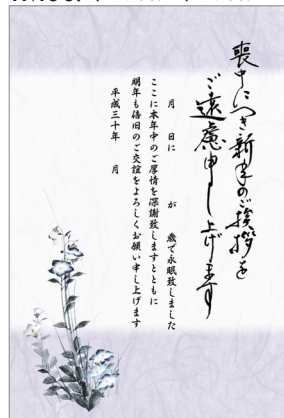 喪中につき新年のご挨拶を
ご遠慮申し上げます
月　日に　が　歳で永眠致しました
ここに本年中のご厚情を深謝致しますとともに
明年も倍旧のご交誼をよろしくお願い申し上げます
平成三十年　月